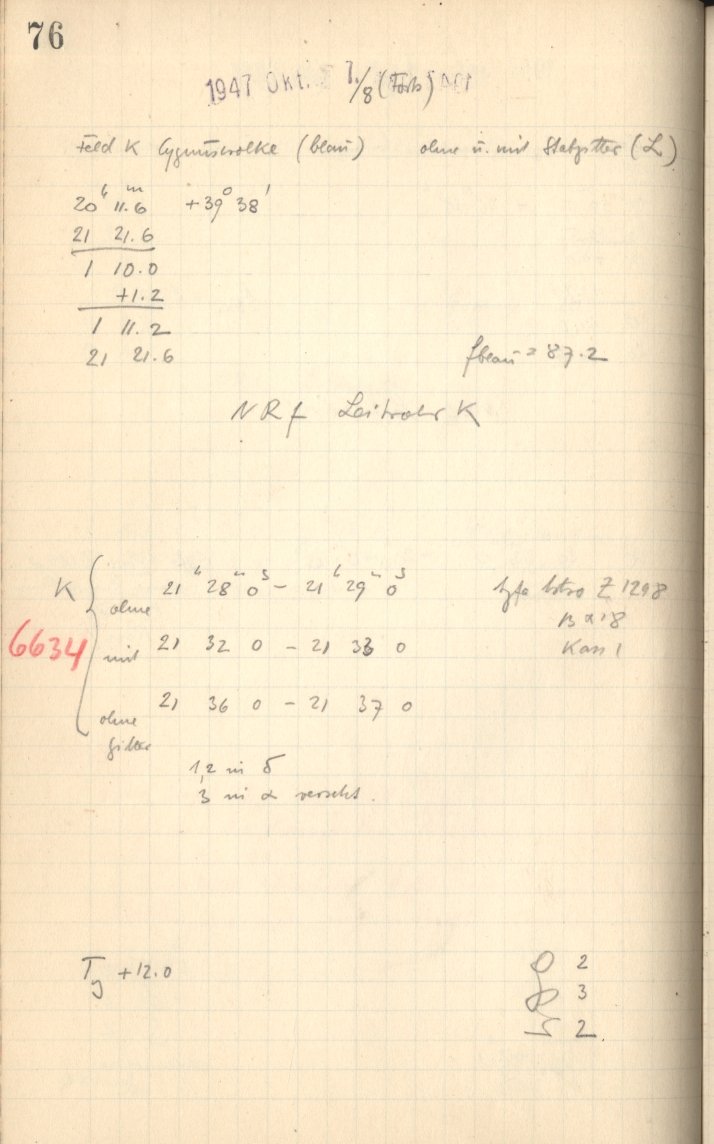 76
1947 Okt. 7./8 (Forts)
Feld K Cygnuswolke (blau) ohne u. mit Stabgitter (L)
20ʰ 11.6ᵐ +39° 38'
21 21.6
1 10.0
+1.2
1 11.2
21 21.6
fblau = 87.2
NRf Leitrohr K
K
6634
ohne 21ʰ 28ᵐ 0ˢ – 21ʰ 29ᵐ 0ˢ
mit 21 32 0 – 21 33 0
ohne Gitter 21 36 0 – 21 37 0
Agfa Astro Z 1298
13 x 18
Kass 1
1,2 in δ
3 in α versetzt.
T +12.0
2
3
2